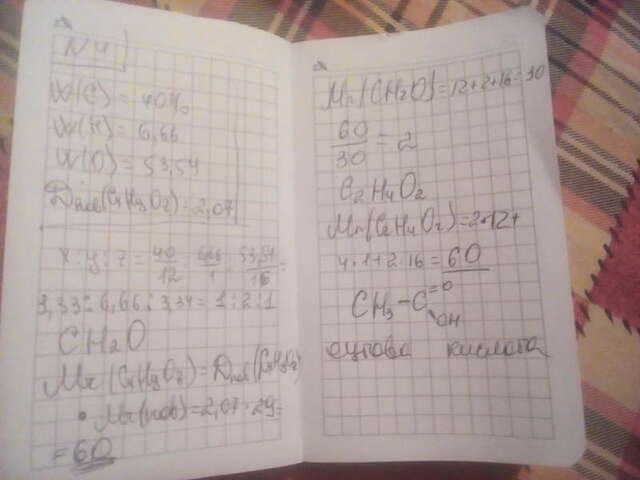 N4
W(C) = 40%
W(H) = 6,66
W(O) = 53,54
Dпов(CxHyOz) = 2,07
x : y : z = 40/12 : 6,66/1 : 53,54/16 =
3,33 : 6,66 : 3,34 = 1 : 2 : 1
CH2O
Mr(CxHyOz) = Dпов(CxHyOz)
• Mr(пов) = 2,07 · 29 =
= 60
Mr(CH2O) = 12+2+16 = 30
60/30 = 2
C2H4O2
Mr(C2H4O2) = 2·12+
4·1+2·16 = 60
CH3-C=O
OH
оцтова кислота